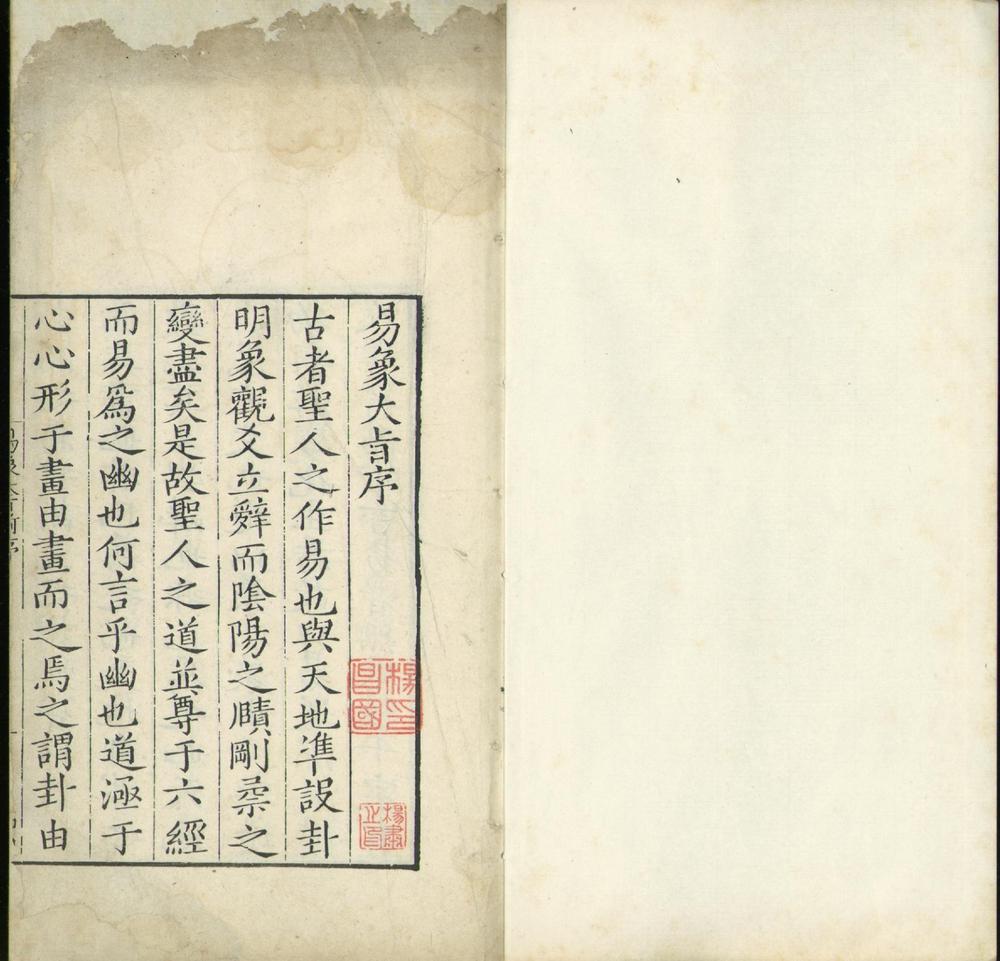 易象大旨序
古者聖人之作易也與天地準設卦
明象觀爻立辭而隂陽之賾剛柔之
變盡矣是故聖人之道並尊于六經
而易爲之幽也何言乎幽也道極于
心心形于畫由畫而之焉之謂卦由
楊印昌國